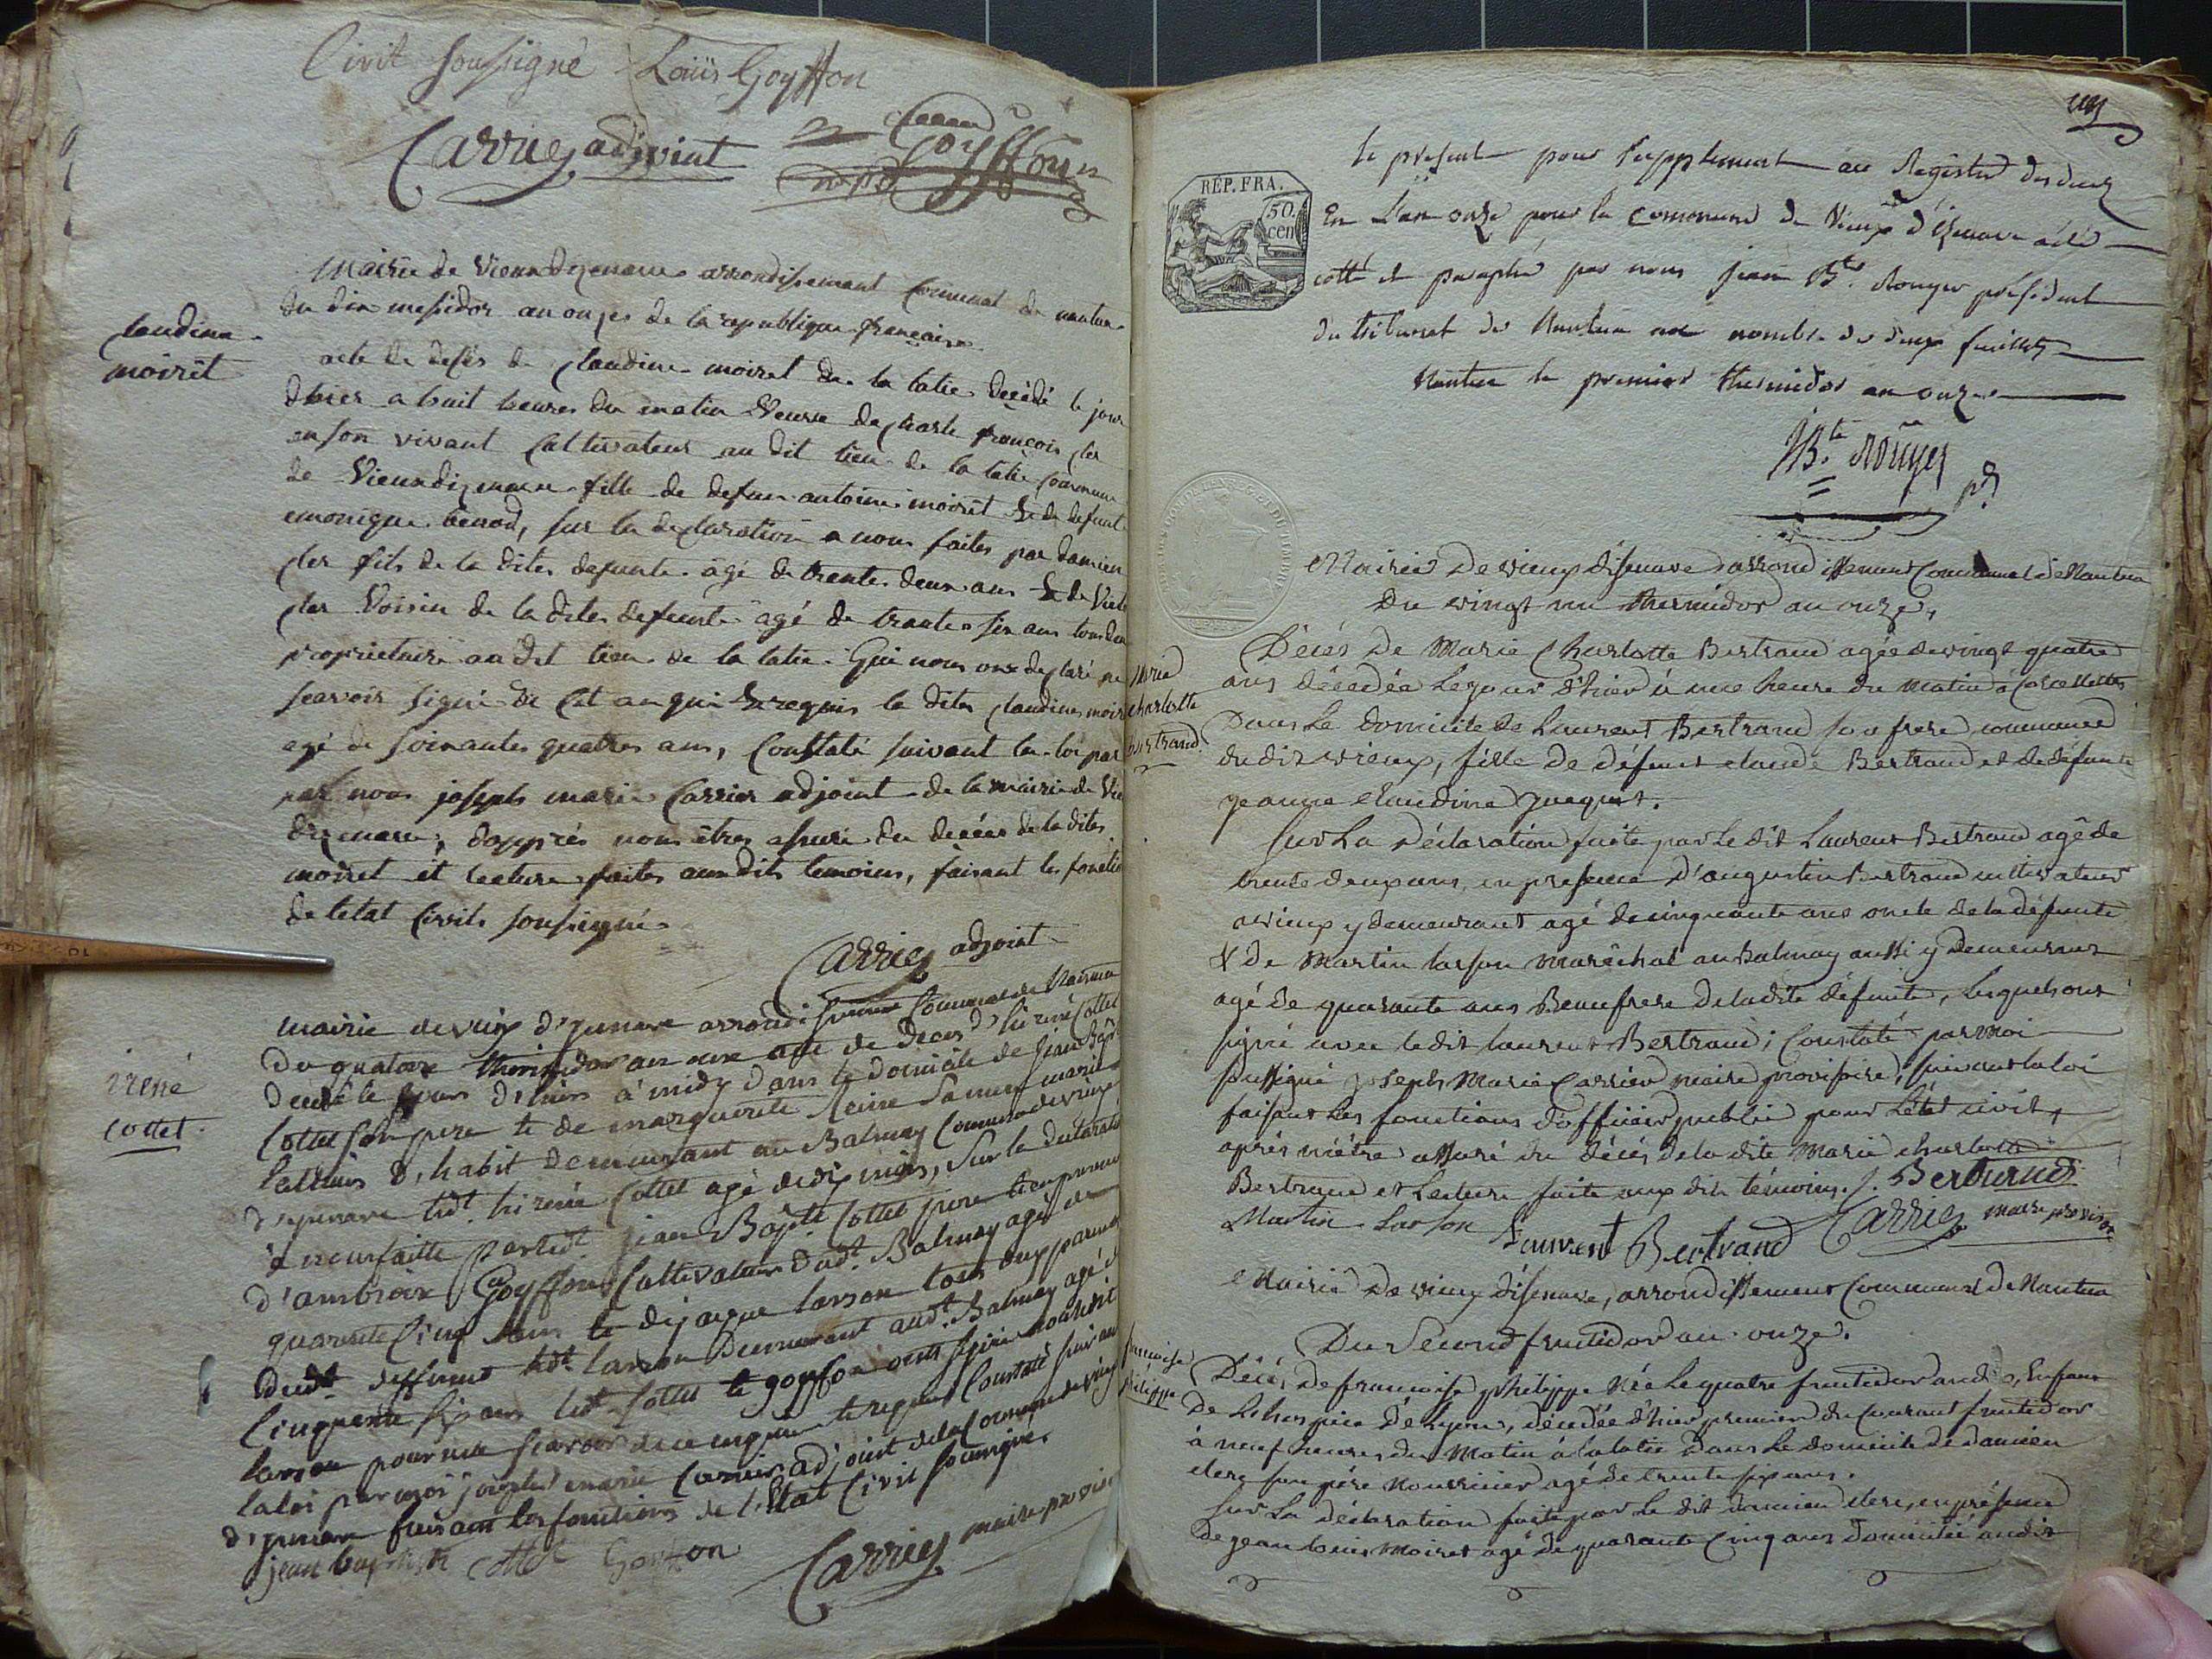 Civil sousigné Louis Goyffon
Carrier adjoint
Goyffon
Mairie de Vieuxdizenave arrondissement Communal de nantua
du dix messidor an onze de la republique française
Claudine
moiret
acte de déses de Claudine moiret de la latie décédé le jour
dhier a huit heures du matin Veuve de Charle françois Cler
en son vivant Cultivateur au dit lieu de la latie Commune
de Vieuxdizenave fille de defun antoine moirêt & de defunte
monique benod, sur la declaration a nous faites par damien
Cler fils de la dites defunte âgé de trente deux ans & de
Cler Voisin de la dites defunte âgé de trante six ans tous deux
proprietaire au dit lieu de la latie. Qui nous onx declaré ne
scavoir signé de Cet an qui & requis la dites Claudine moiret
agé de soixantes quatres ans, Constaté suivant la loi par
nous joseph marie Carrier adjoint de la mairie de Vieux
dizenave, dapprés nous êtres assuré du decées de la dites
moiret et lecture faites aux dits temoins, faisant les fonctions
de letat Civils sousigné
Carrier adjoint
mairie de vieux d'izenave arrondissement Communal de Nantua
Irené
Cottet
du quatorze thermidor an onze acte de Deces d'hirené Cottet
decedé le jour d'hier à midy dans le domicile de Jean Bapt.
Cottet son pere & de marguerite Reine mariés
tailleurs d'habit demeurant au Balmay Commune de vieux
d'izenave ledt. hirené Cottet agé de dix mois, sur la declaration
à nous faitte par ledt. jean Bapte. Cottet pere & en presence
d'ambroise Goyffon Cultivateur dudt. Balmay agé de
quarente Cinq ans & de jacque larson tous deux parents
dudt. deffunt ledt. larson Demeurant audt. Balmay agé de
Cinquente six ans ledt. Cottet & goyffon onts signé non ledit
larson pour ne scavoir de ce enquis & requis Constaté suivant
la loi par moi joseph marie Carrier adjoint de la Commune de vieux
d'izenave faisant les fonctions de l'Etat Civil sousigné.
jean baptiste Cottet Goyffon
Carrier maire provisoire
Le présent pour supplément au Registre des decès
RÉP. FRA.
50. cen
En L'an onze pour la commune de Vieux d'izenave a été
cotté et paraphé par nous jean Bte. Rouyer président
du tribunal de Nantua au nombre de deux feuillets
Nantua le premier thermidor an onze
JBte. Rouyer
pdt
Mairie de vieux d'isenave arrondissement Communal de Nantua
Du vingt un thermidor an onze,
Marie
charlotte
bertrand
Décès de Marie Charlotte Bertrand agée de vingt quatre
ans décedée le jour d'hier à une heure du matin à Corcelettes
Dans Le domicile de Laurent Bertrand son frere commune
du dit vieux, fille de défunt claude Bertrand et de défunte
jeanne Claudine Juequet.
Sur La Déclaration faite par Le dit Laurent Bertrand agé de
trente deux ans, en presence d'augustin Bertrand cultivateur
a vieux y demeurant agé de cinquante ans oncle de la défunte
& de Martin larson maréchal au Balmay aussi y Demeurant
agé de quarante ans Beaufrere de la dite défunte, lesquels ont
signé avec ledit laurent Bertrand; Constaté par moi
soussigné joseph Marie Carrier maire provisoire, suivant la loi
faisant Les fonctions d'officier public pour L'état civil,
après m'être assuré du décès de la dite Marie charlotte
Bertrand et Lecture faite aux dits témoins. /. Bertrand
Martin Larson Laurent Bertrand Carrier maire provisoire
Mairie De vieux d'isenave, arrondissement Communal De Nantua
Du Second fructidor an onze.
françoise
philippe
Décès, De françoise philippe Née Le quatre fructidor an dix, Enfant
De L'hospice De Lyon, décedée d'hier premier du Courant fructidor
à neuf heures du Matin à la latie dans Le domicile de damien
clerc son père nourricier agé de trente six ans.
Sur La déclaration faite par Le dit damien clerc, en présence
de jean louis Moiret agé de quarante Cinq ans domicilié audit